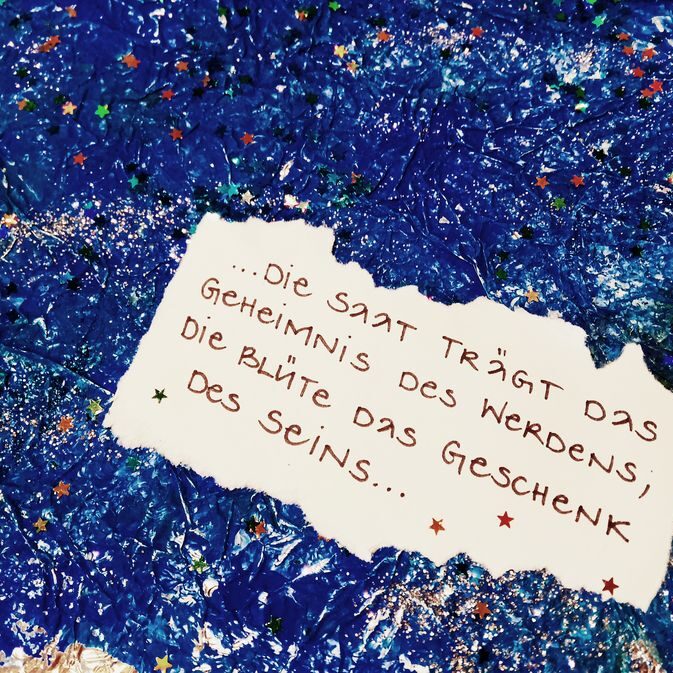 ...Die Saat trägt das
Geheimnis des Werdens;
Die Blüte das Geschenk
des Seins...